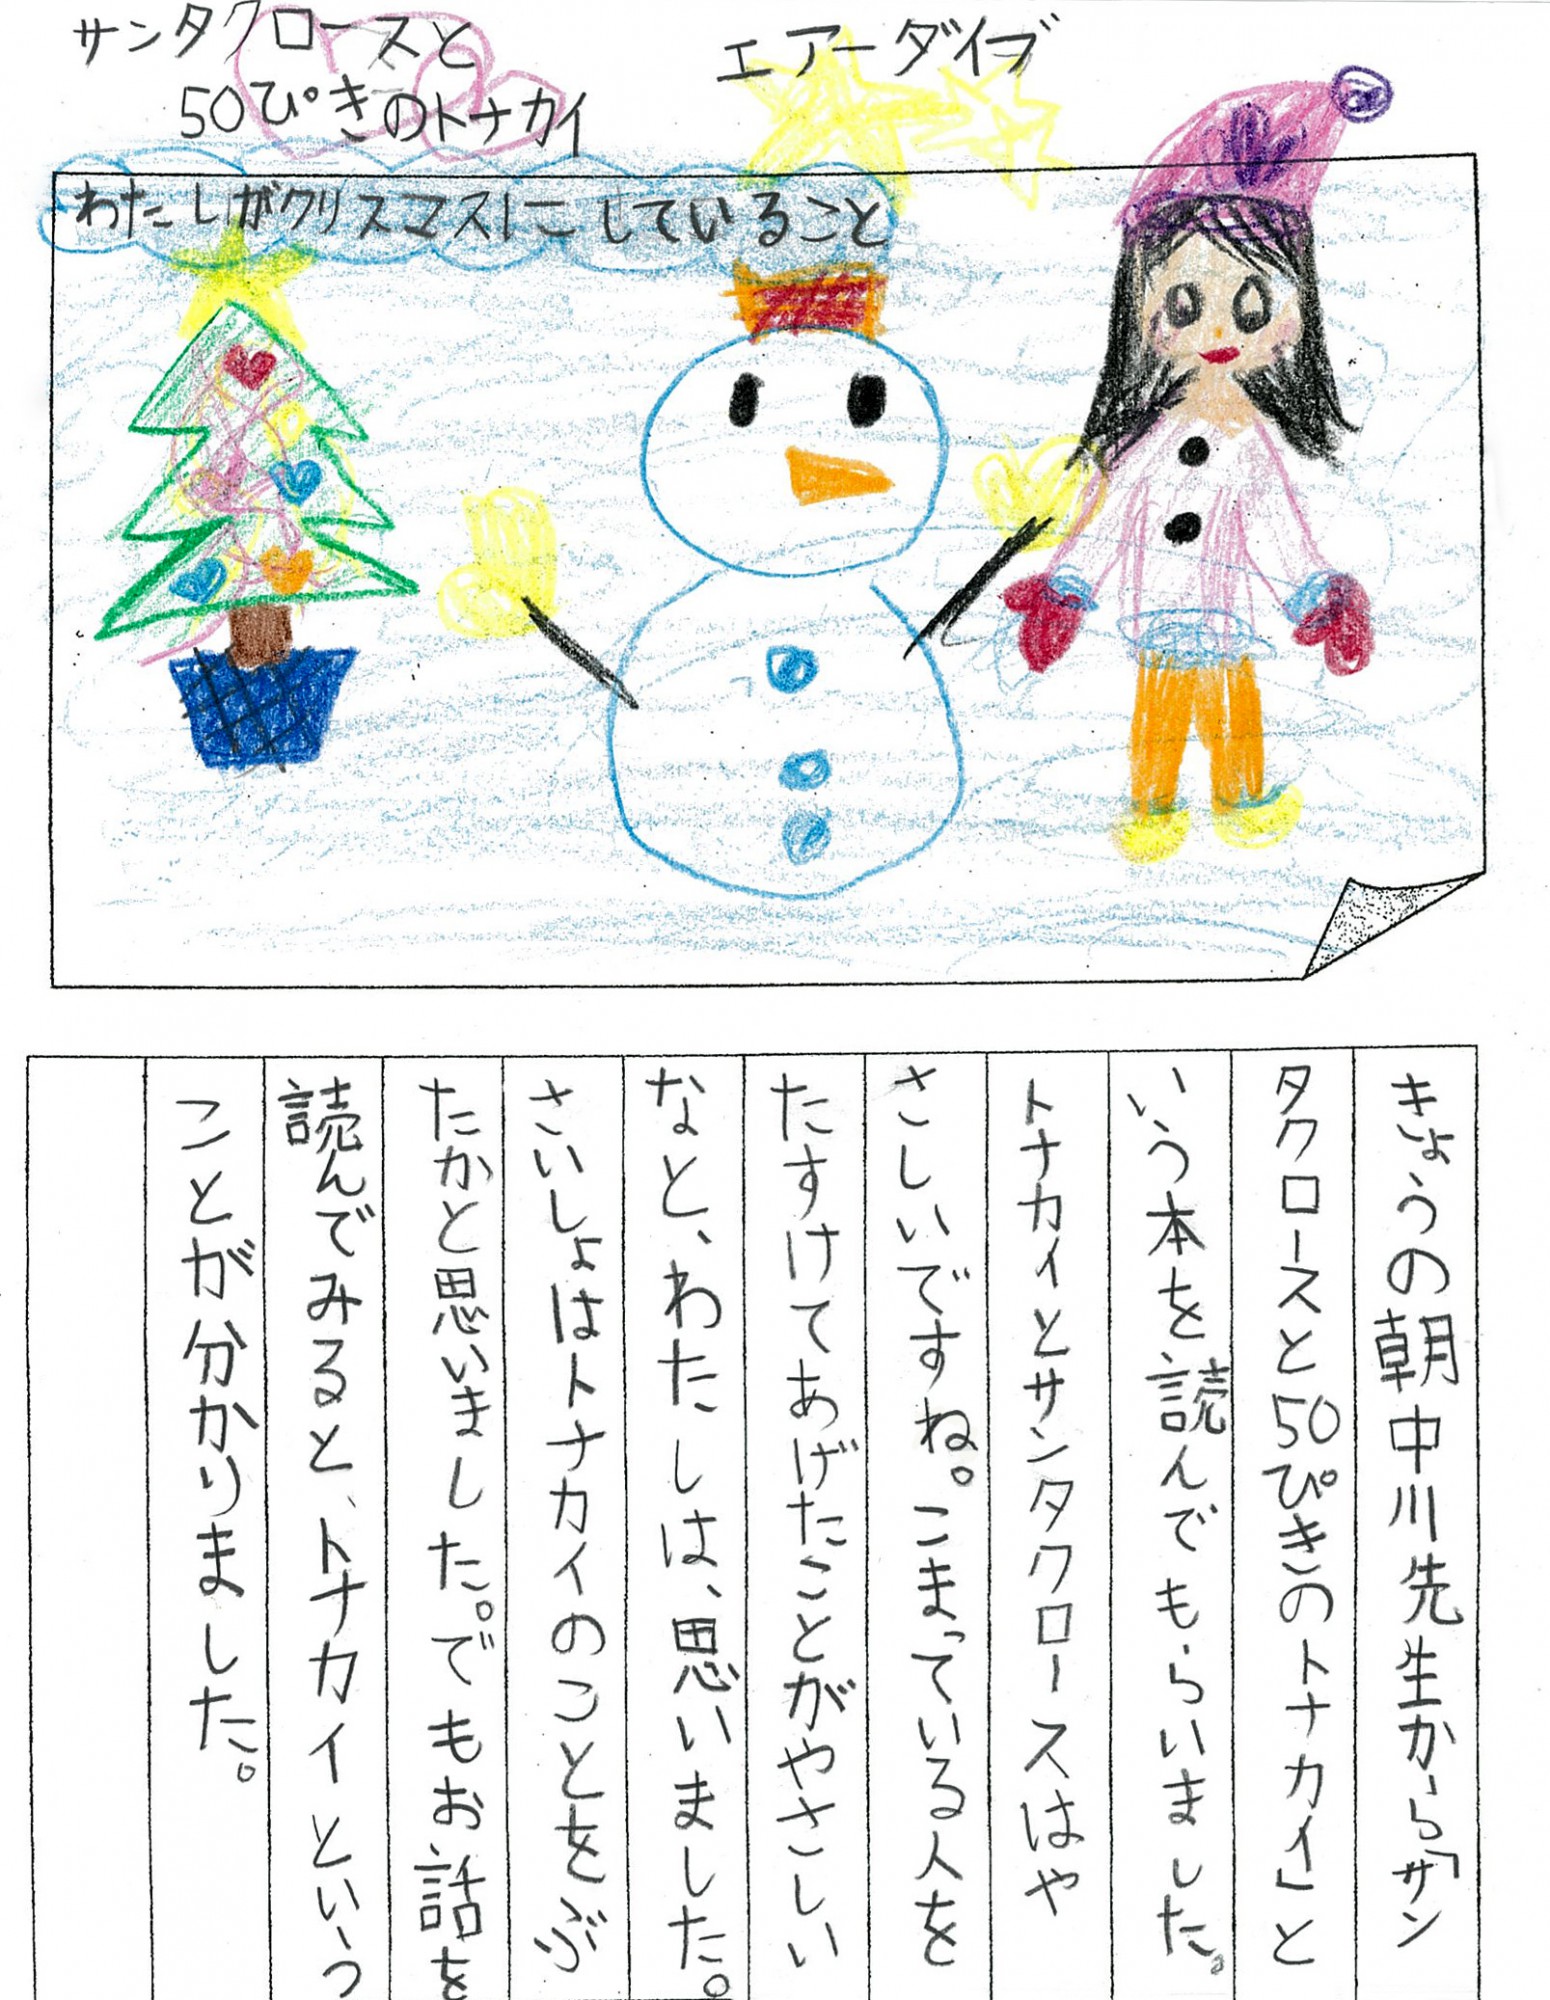 サンタクロースと
50ぴきのトナカイ
エアーダイブ
わたしがクリスマスにこしていること
きょうの朝中川先生から「サン
タクロースと50ぴきのトナカイ」と
いう本を読んでもらいました。
トナカイとサンタクロースはや
さしいですね。こまっている人を
たすけてあげたことがやさしい
なと、わたしは、思いました。
さいしょはトナカイのことをぶ
たかと思いました。でもお話を
読んでみると、トナカイという
ことが分かりました。